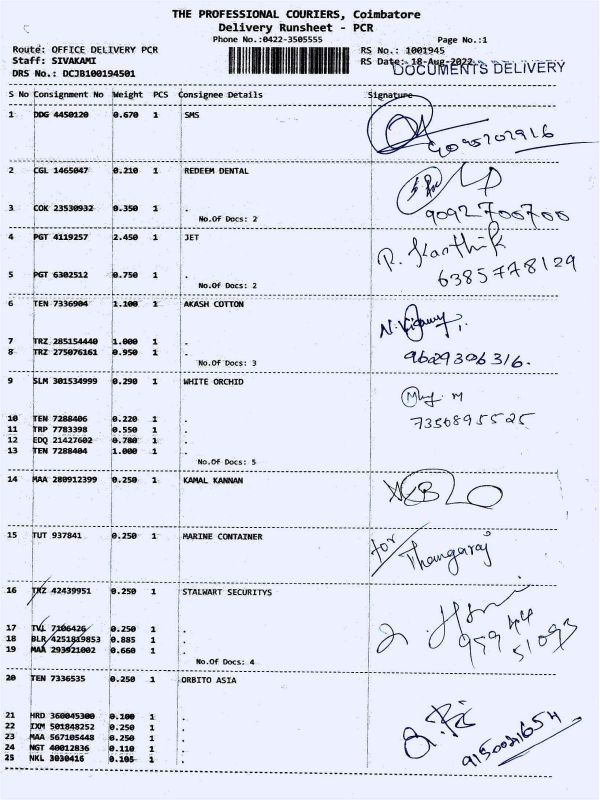 THE PROFESSIONAL COURIERS, Coimbatore
Delivery Runsheet - PCR
Phone No.:0422-3505555
Page No.:1
Route: OFFICE DELIVERY PCR
RS No.: 1001945
Staff: SIVAKAMI
RS Date: 18-Aug-2022
DRS No.: DCJB100194501
DOCUMENTS DELIVERY
S No Consignment No Weight PCS Consignee Details Signature
1 DDG 4450120 0.670 1 SMS
2 CGL 1465047 0.210 1 REDEEM DENTAL
3 COK 23530932 0.350 1 .
9092700700
No.Of Docs: 2
4 PGT 4119257 2.450 1 JET
R. Karthik
5 PGT 6302512 0.750 1 .
6385778129
No.Of Docs: 2
6 TEN 7336904 1.100 1 AKASH COTTON
7 TRZ 285154440 1.000 1 .
8 TRZ 275076161 0.950 1 .
9629306316.
No.Of Docs: 3
9 SLM 301534999 0.290 1 WHITE ORCHID
10 TEN 7288406 0.220 1 .
7356895525
11 TRP 7783398 0.550 1 .
12 EDQ 21427602 0.780 1 .
13 TEN 7288404 1.000 1 .
No.Of Docs: 5
14 MAA 280912399 0.250 1 KAMAL KANNAN
15 TUT 937841 0.250 1 MARINE CONTAINER
for Thangaraj
16 TRZ 42439951 0.250 1 STALWART SECURITYS
17 TVL 7106426 0.250 1 .
18 BLR 4251819853 0.885 1 .
19 MAA 293921002 0.660 1 .
959 44
51093
No.Of Docs: 4
20 TEN 7336535 0.250 1 ORBITO ASIA
21 HRD 360045300 0.100 1 .
22 IXM 501848252 0.250 1 .
23 MAA 567105448 0.250 1 .
24 NGT 40012836 0.110 1 .
25 NKL 3030416 0.105 1 .